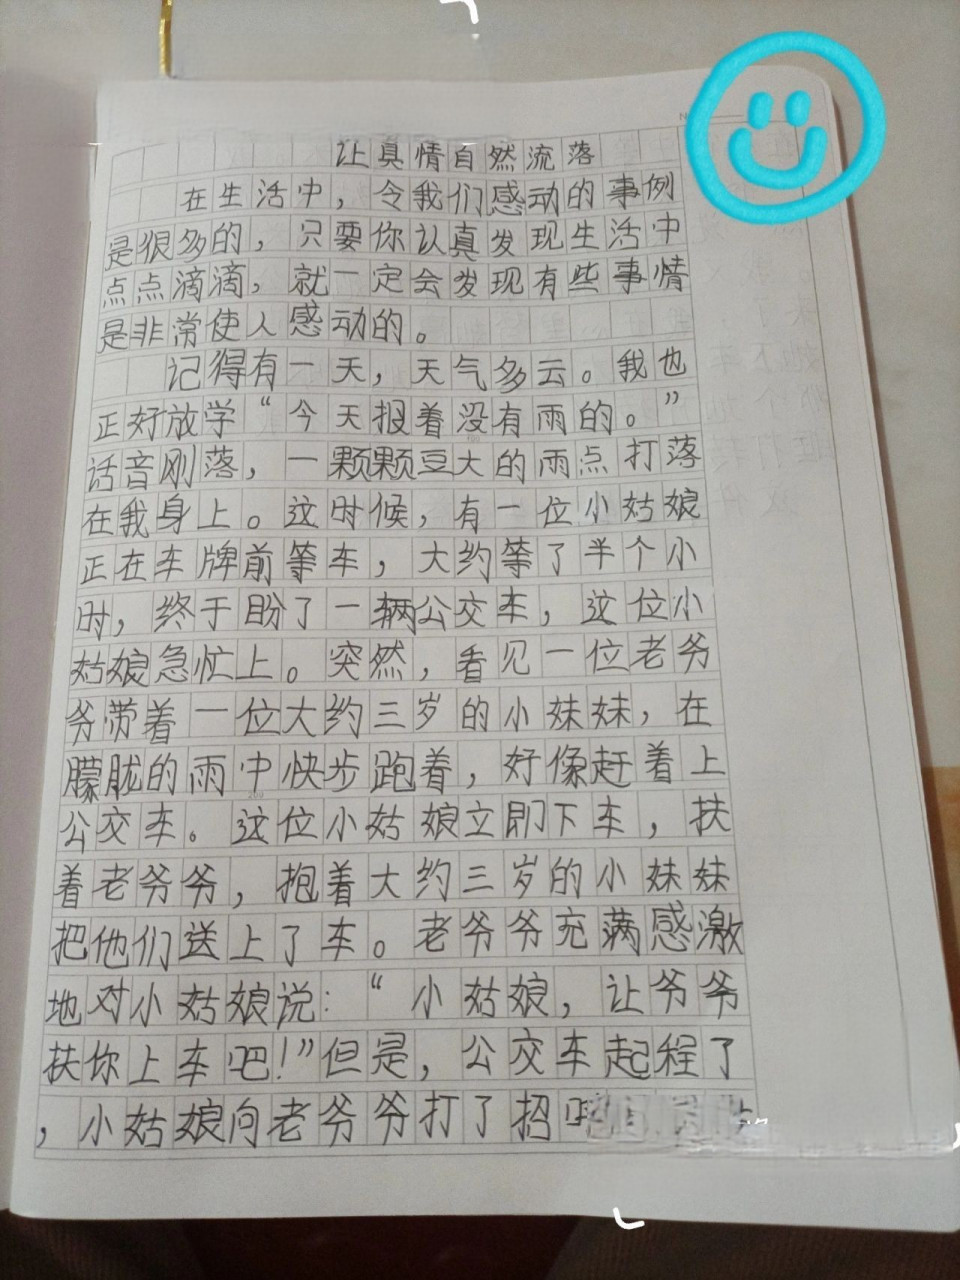 让真情自然流落
在生活中，令我们感动的事例
是狠多的，只要你认真发现生活中
点点滴滴，就一定会发现有些事情
是非常使人感动的。
记得有一天，天气多云。我也
正好放学“今天报着没有雨的。”
话音刚落，一颗颗豆大的雨点打落
在我身上。这时候，有一位小姑娘
正在车牌前等车，大约等了半个小
时，终于盼了一辆公交车，这位小
姑娘急忙上。突然，看见一位老爷
爷带着一位大约三岁的小妹妹，在
朦胧的雨中快步跑着，好像赶着上
公交车。这位小姑娘立即下车，扶
着老爷爷，抱着大约三岁的小妹妹
把他们送上了车。老爷爷充满感激
地对小姑娘说：“小姑娘，让爷爷
扶你上车吧！”但是，公交车起程了
，小姑娘向老爷爷打了招